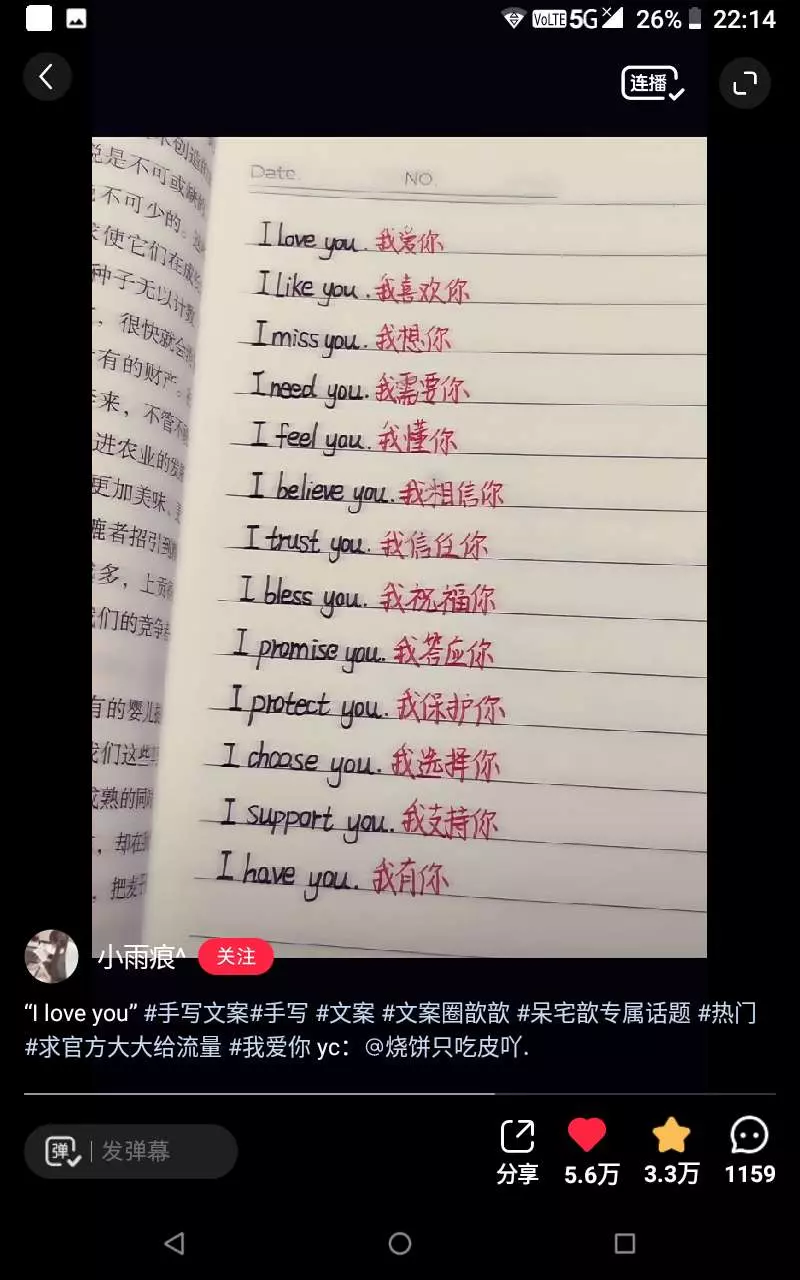 VoLTE 5G 26% 22:14
连播
说是不可或缺的
不可少的。
使它们在成
种子无以计数
，很快就会
有的财产。
来，不管不
进农业的发
更加美味、
者招引到
多，上贡
们的竞争
有的婴儿
们这些
成熟的同
，却在
，把友
Date. NO.
I love you. 我爱你
I like you. 我喜欢你
I miss you. 我想你
I need you. 我需要你
I feel you. 我懂你
I believe you. 我相信你
I trust you. 我信任你
I bless you. 我祝福你
I promise you. 我答应你
I protect you. 我保护你
I choose you. 我选择你
I support you. 我支持你
I have you. 我有你
小雨痕^ 关注
“I love you” #手写文案#手写 #文案 #文案圈歆歆 #呆宅歆专属话题 #热门
#求官方大大给流量 #我爱你 yc：@烧饼只吃皮吖.
弹 发弹幕
分享 5.6万 3.3万 1159